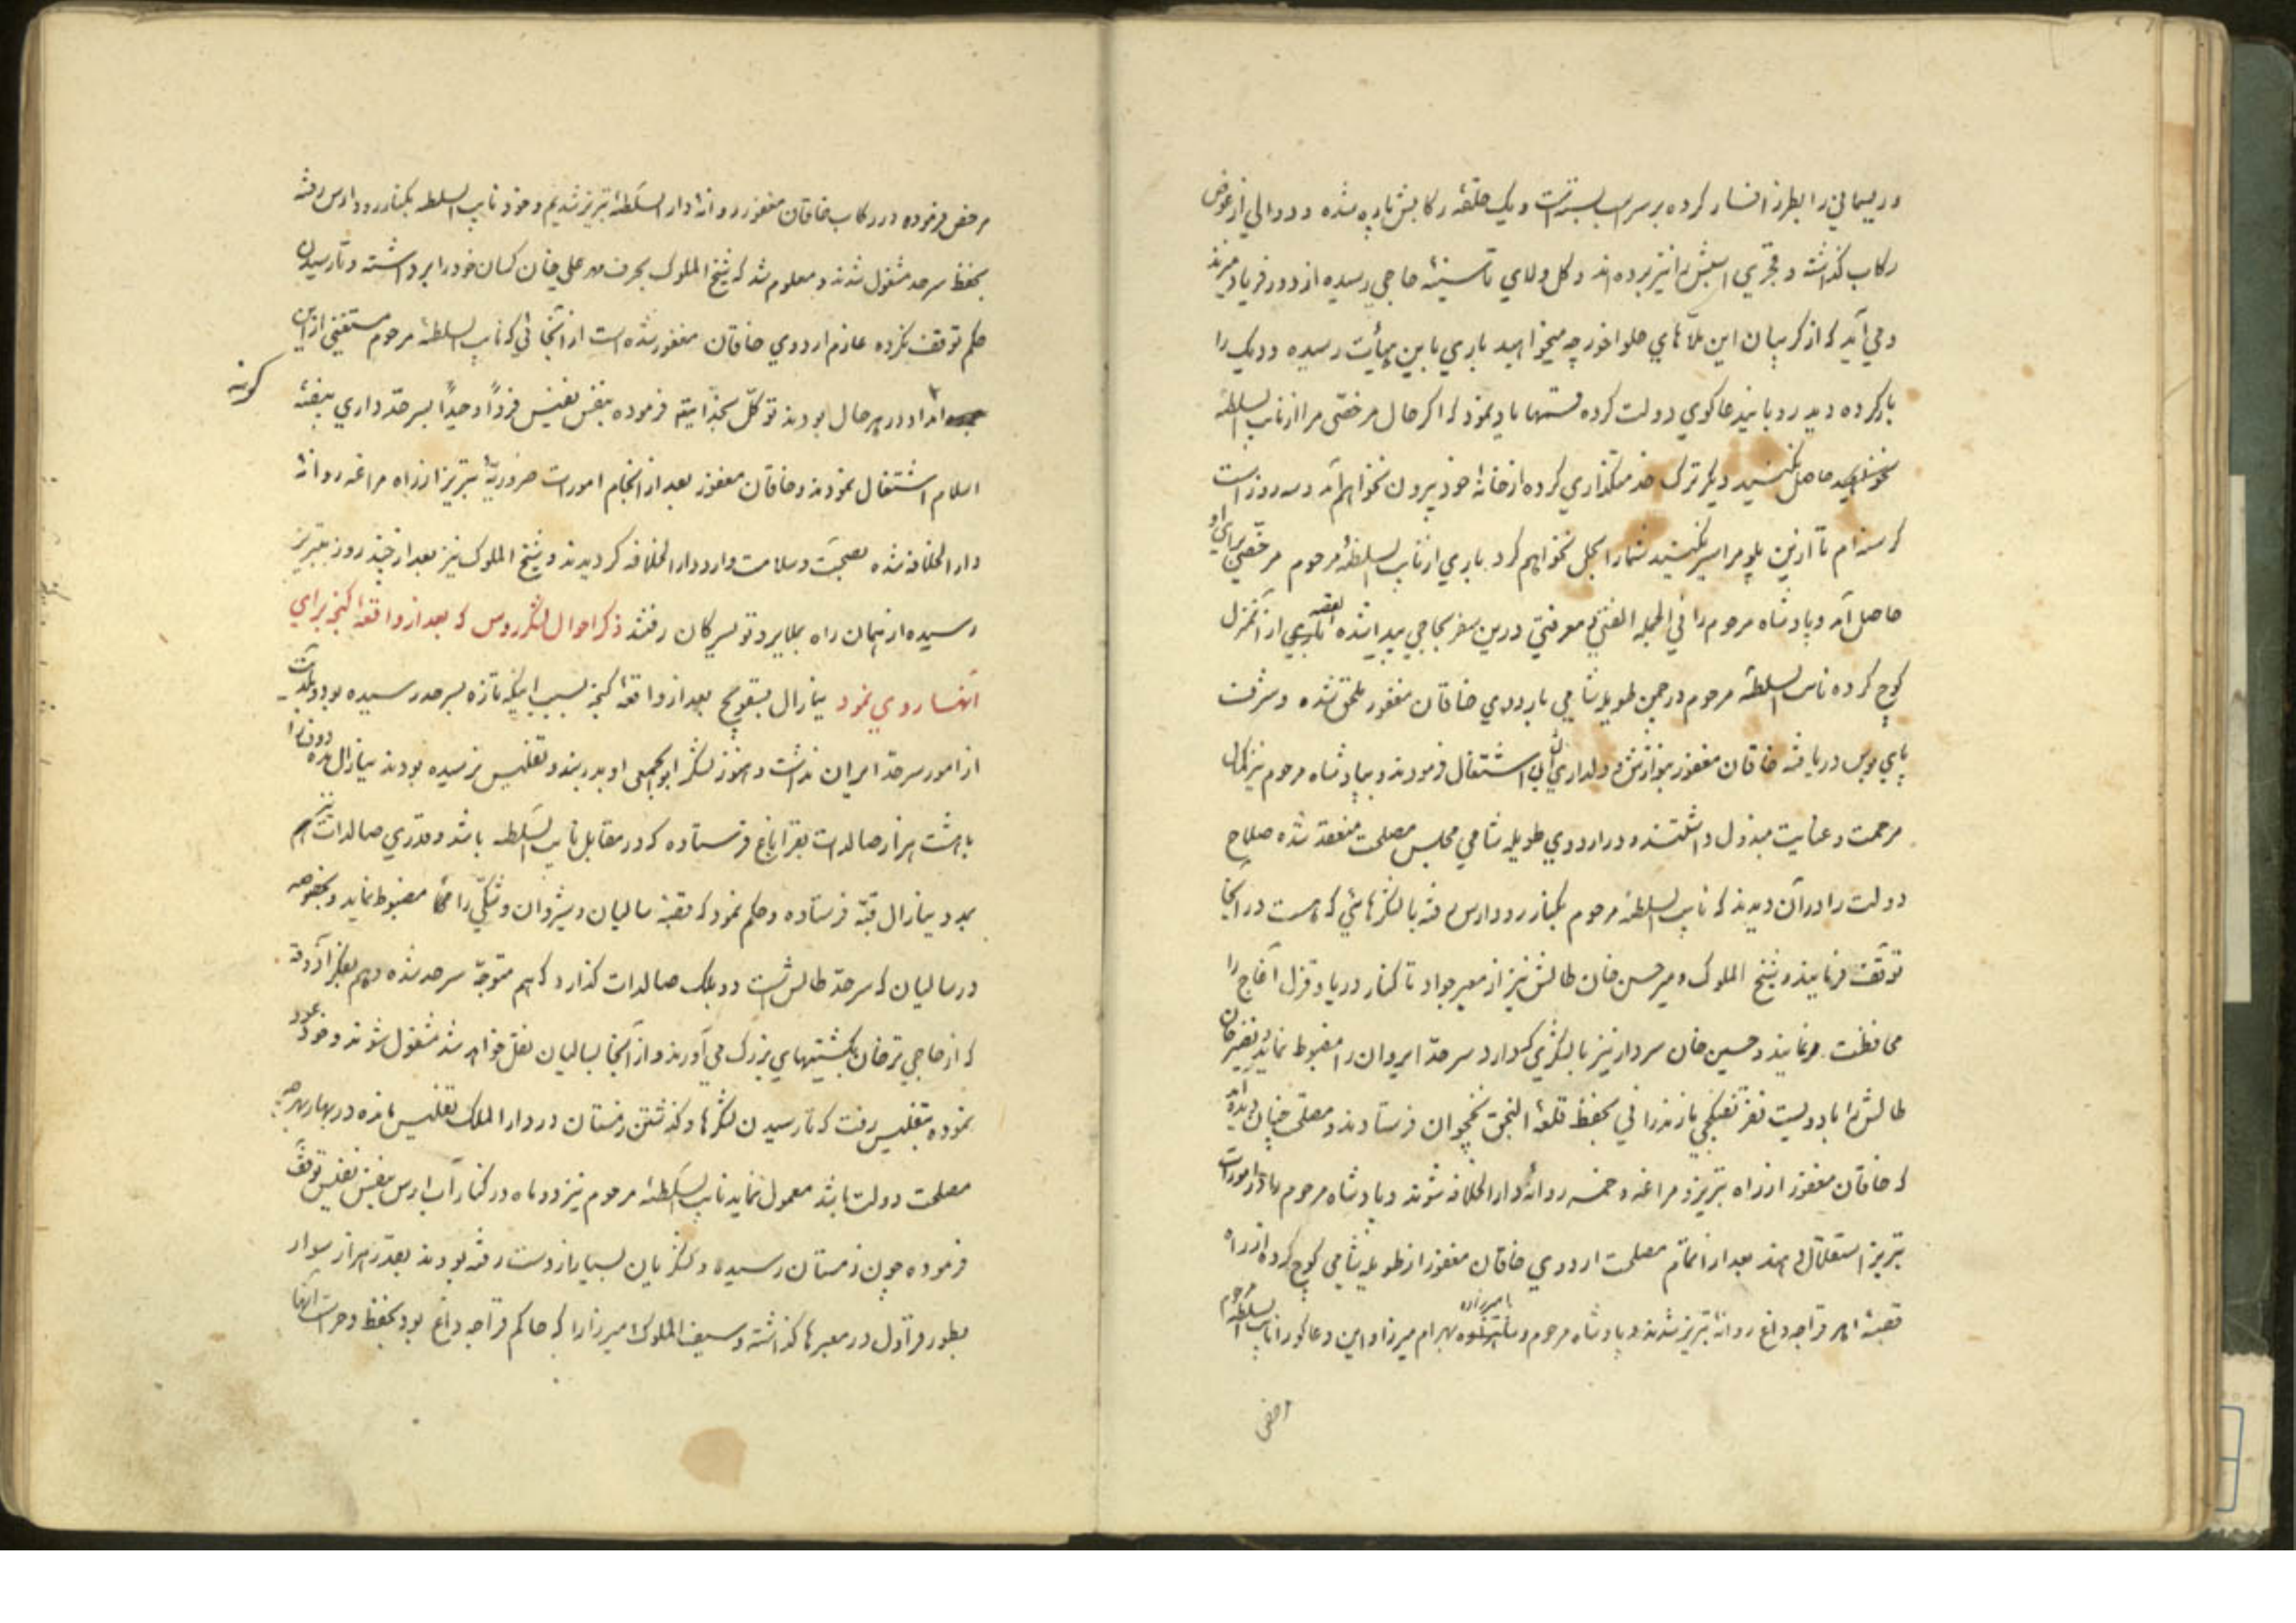 و ریسمانی را بطرز افسار کرده بر سر اسب بسته است و یک حلقهٔ رکابش پاره شده و دوالی از عوض
رکاب گذاشته و قجری اسبش را نیز برده‌اند و گل و لای تا سینهٔ حاجی رسیده از دور فریاد میزند
و می‌آید که از گریبان این ملاهای حلواخور چه میخواهید باری باین هیأت رسیده و دیگ را
بار کرده دید رو باینداعاگوی دولت کرده قسمها یاد نمود که اگر حال مرخصی مرا از نایب السلطنه
حاصل نکنید دیگر ترک خدمتگذاری کرده از خانهٔ خود بیرون نخواهم آمد و سه روز است
گرسنه‌ام تا ازین پلو مرا سیر نکنید شمارا بحل نخواهم کرد باری از نایب السلطنهٔ مرحوم مرخصی برای او
حاصل آمد و پادشاه مرحوم را فی الجمله الفتی و معرفتی درین سفر بحاجی پیدا شده از آنمنزل
کوچ کرده نایب السلطنهٔ مرحوم در چمن طویله شامی باردوی خاقان مغفور ملحق شده و شرف
پای بوس دریافته خاقان مغفور بنوازش و دلداری اشتغال فرمودند و بپادشاه مرحوم نیز کمال
مرحمت و عنایت مبذول داشتند و در اردوی طویله شامی مجلس مصلحت منعقد شده صلاح
دولت را در آن دیدند که نایب السلطنهٔ مرحوم بکنار رود ارس رفته با لشکرهائی که هست در آنجا
توقف فرمایند و شیخ الملوک و میر حسن خان طالش نیز از معبر جواد تا کنار دریا و قزل آغاج را
محافظت فرمایند و حسین خان سردار نیز با لشکری که دارد سرحد ایروان را مضبوط نماید و نصیر خان
طالش را با دویست نفر تفنگچی مازندرانی بحفظ قلعهٔ النجق نخچوان فرستادند و مصلحت چنان دیدند
که خاقان مغفور از راه تبریز و مراغه و خمسه روانهٔ دارالخلافه شوند و پادشاه مرحوم را در امورات
تبریز استقلال دهند بعد از اتمام مصلحت اردوی خاقان مغفور از طویله شامی کوچ کرده از راه
قصبهٔ اهر قراجه داغ روانهٔ تبریز شدند و پادشاه مرحوم و شاهزاده بهرام میرزا و این دعاگو را نایب السلطنه مرحوم
مرخص فرموده در رکاب خاقان مغفور روانهٔ دار السلطنهٔ تبریز شدیم و خود نایب السلطنه بکنار رود ارس رفته
بحفظ سرحد مشغول شدند و معلوم شد که شیخ الملوک بحرف مهر علی خان کسان خود را برداشته و تا رسیدن
حکم توقف نکرده عازم اردوی خاقان مغفور شده است از آنجائی که نایب السلطنهٔ مرحوم مستغنی ازین
گونه
امداد در هر حال بودند توکل بخدا یتم فرموده بنفس نفیس فرداً وحیداً بسرحد داری بیضهٔ
اسلام اشتغال نمودند و خاقان مغفور بعد از انجام امورات ضروریهٔ تبریز از راه مراغه روانهٔ
دار الخلافه شده بصحت و سلامت وارد دار الخلافه گردیدند و شیخ الملوک نیز بعد از چند روز بتبریز
رسیده از همان راه بملایر و تویسرکان رفتند ذکر احوال لشکر روس که بعد از واقعهٔ گنجه برای
آنها روی نمود ینارال بسقویچ بعد از واقعهٔ گنجه بسبب اینکه تازه بسرحد رسیده بود و بلدیت
از امور سرحد ایران نداشت و هنوز لشکر ابوابجمعی او بدربند و تفلیس نرسیده بودند ینارال
با هشت هزار صالدات بقراباغ فرستاده که در مقابل نایب السلطنه باشد و قدری صالدات نیز
بمدد ینارال قبه فرستاده و حکم نمود که قصبهٔ سالیان و شیروان و شکی را مضبوط نماید و بخصوصه
در سالیان که سرحد طالش است دو بلک صالدات گذارد که هم متوجه سرحد شده و هم بفکر آذوقه
که از حاجی ترخان بکشتیهای بزرگ می‌آورند و از آنجا بسالیان نقل خواهد شد مشغول شوند و خود عود
نموده بتفلیس رفت که تا رسیدن لشکرها و گذشتن زمستان در دار الملک تفلیس مانده در بهار هر چه
مصلحت دولت باشد معمول نماید نایب السلطنهٔ مرحوم نیز دو ماه در کنار آب ارس بنفس نفیس توقف
فرموده چون زمستان رسیده و لشکریان بسیار از دست رفته بودند بقدر هزار سوار
بطور قراول در معبرها گذاشته و سیف الملوک میرزا را که حاکم قراجه داغ بود بحفظ و حراست آنها